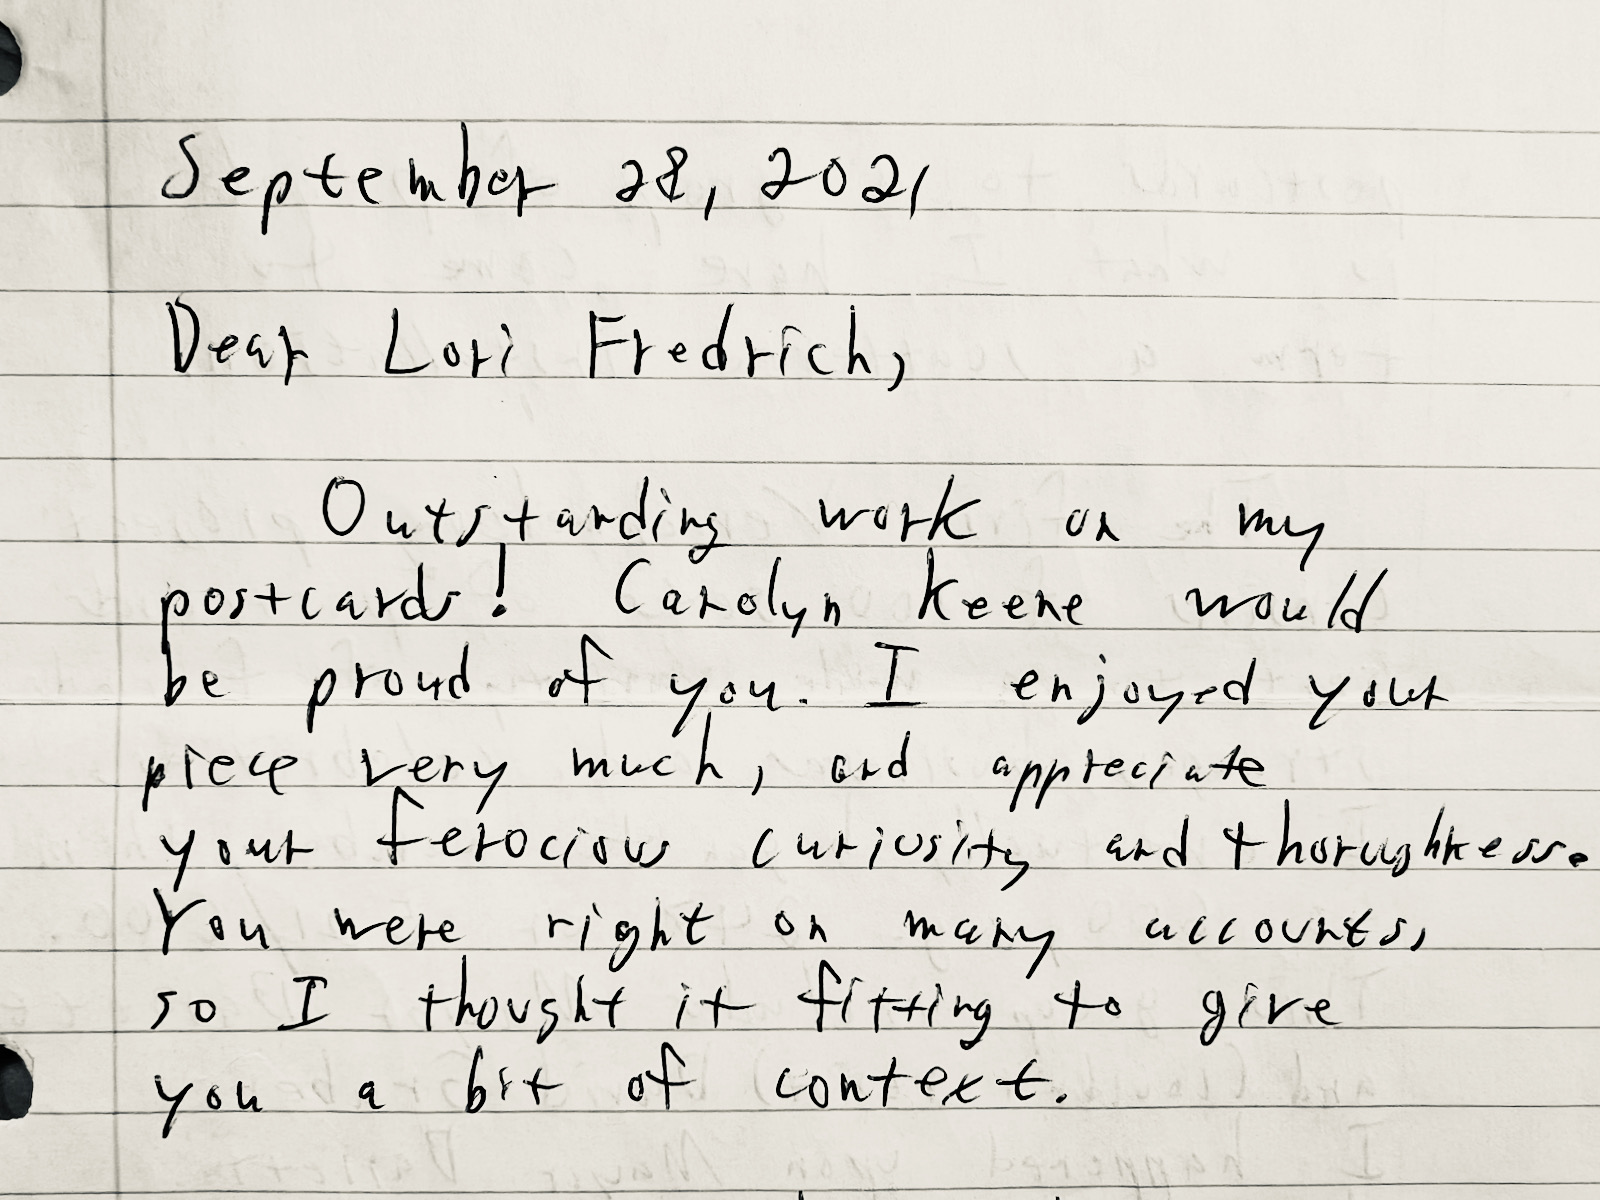 September 28, 2021
Dear Lori Fredrich,
Outstanding work on my
postcards! Carolyn Keene would
be proud of you. I enjoyed your
piece very much, and appreciate
your ferocious curiosity and thoroughness.
You were right on many accounts,
so I thought it fitting to give
you a bit of context.